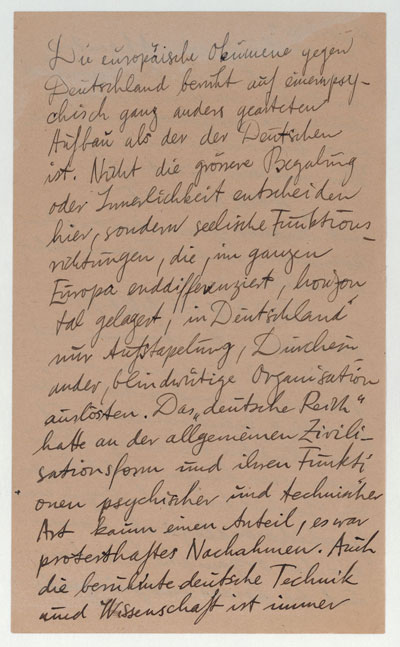 Die europäische Ökumene gegen
Deutschland beruht auf einem psy-
chisch ganz anders gearteten
Aufbau als der der Deutschen
ist. Nicht die grössere Begabung
oder Innerlichkeit entscheiden
hier, sondern seelische Funktions-
richtungen, die, im ganzen
Europa enddifferenziert, horizon
tal gelagert, in Deutschland"
nur Aufstapelung, Durchein
ander, blindwütige Organisation
auslösten. Das „deutsche Reich"
hatte an der allgemeinen Zivili-
sationsform und ihren Funkti
onen psychischer und technischer
Art kaum einen Anteil, es war
protzenhaftes Nachahmen. Auch
die berühmte deutsche Technik
und Wissenschaft ist immer